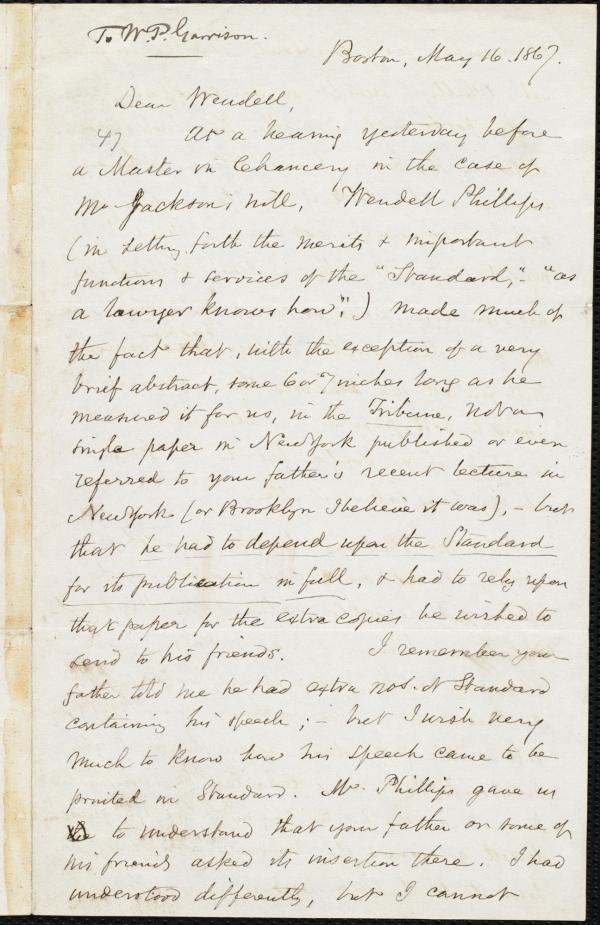 To W. P. Garrison.
Boston, May 16. 1867.
Dear Wendell,
At a hearing yesterday before
a Master in Chancery in the case of
Mr Jackson's will, Wendell Phillips
(in setting forth the merits & important
functions & services of the "Standard,"- "as
a lawyer knows how",) made much of
the fact that, with the exception of a very
brief abstract, some 6 or 7 inches long as he
measured it for us, in the Tribune, not a
single paper in New York published or even
referred to your father's recent lecture in
New York (or Brooklyn I believe it was), - but
that he had to depend upon the Standard
for its publication in full, & had to rely upon
that paper for the extra copies he wished to
send to his friends. I remember your
father told me he had extra nos. of Standard
containing his speech; - but I wish very
much to know how his speech came to be
printed in Standard. Mr. Phillips gave us
to understand that your father or some of
his friends asked its insertion there. I had
understood differently, but I cannot